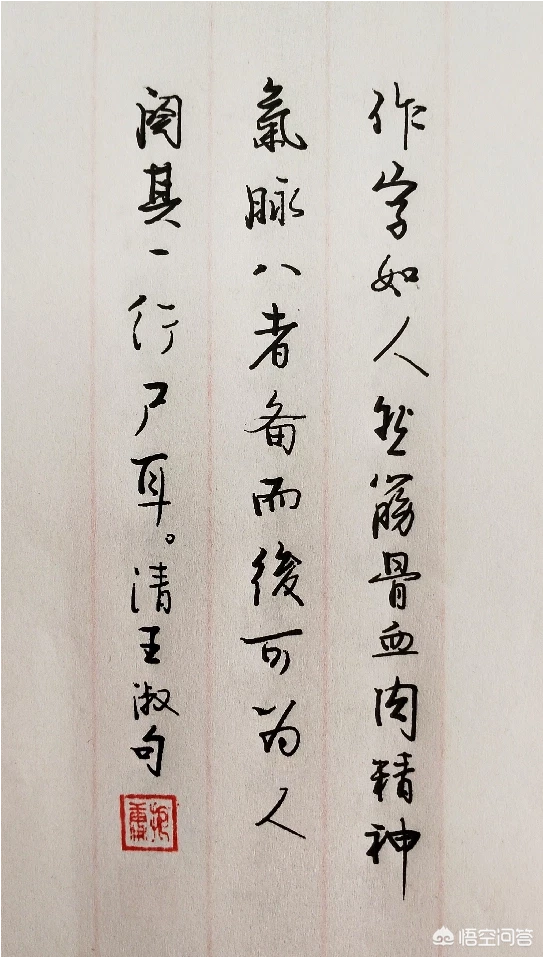 作字如人然筋骨血肉精神
氣脉八者备而後可为人
阁其一行尸耳。清王淑句
悟空问答